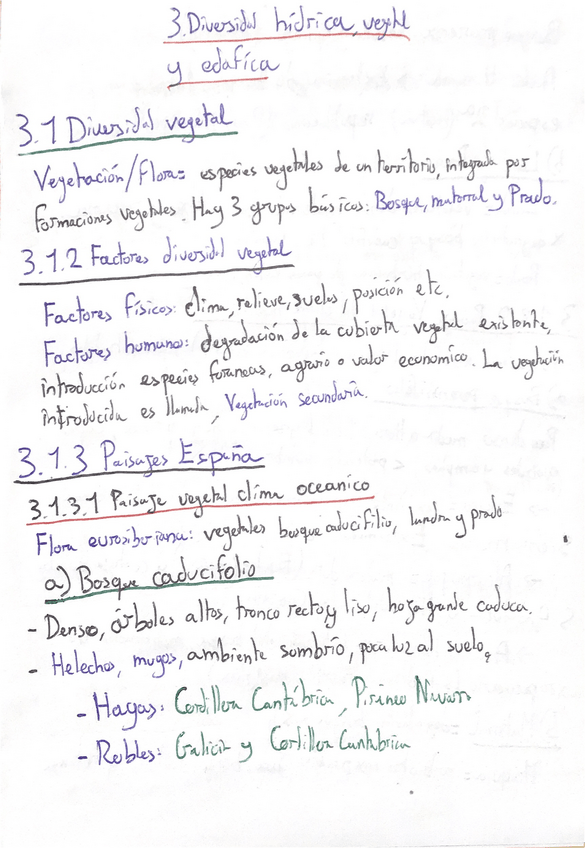 3. Diversidad hídrica, vegetal
y edafíca
3.1 Diversidad vegetal
Vegetación/Flora: especies vegetales de un territorio, integrada por
formaciones vegetales. Hay 3 grupos básicos: Bosque, matorral y Prado.
3.1.2 Factores diversidad vegetal
Factores físicos: clima, relieve, suelos, posición etc.
Factores humano: degradación de la cubierta vegetal existente,
introducción especies foraneas, agrario o valor economico. La vegetación
introducida es llamada, Vegetación secundaria.
3.1.3 Paisajes España
3.1.3.1 Paisaje vegetal clima oceanico
Flora eurosiberiana: vegetales bosque caducifilio, landra y prado
a) Bosque caducifolio
- Denso, árboles altos, tronco recto y liso, hoja grande caduca.
- Helechos, musgos, ambiente sombrío, poca luz al suelo,
- Hayas: Cordillera Cantábrica, Pirineo Navarro
- Robles: Galicia y Cordillera Cantabrica